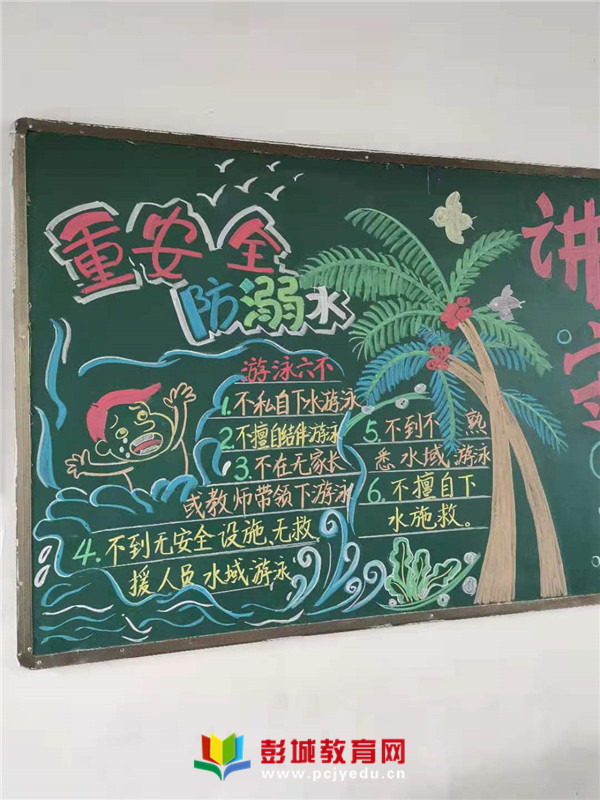 重安全
防溺水
讲
游泳六不
1.不私自下水游泳
2.不擅自结伴游泳
3.不在无家长
或教师带领下游泳
4.不到无安全设施、无救
援人员水域游泳
5.不到不熟
悉水域游泳
6.不擅自下
水施救。
彭城教育网
www.pcjyedu.cn